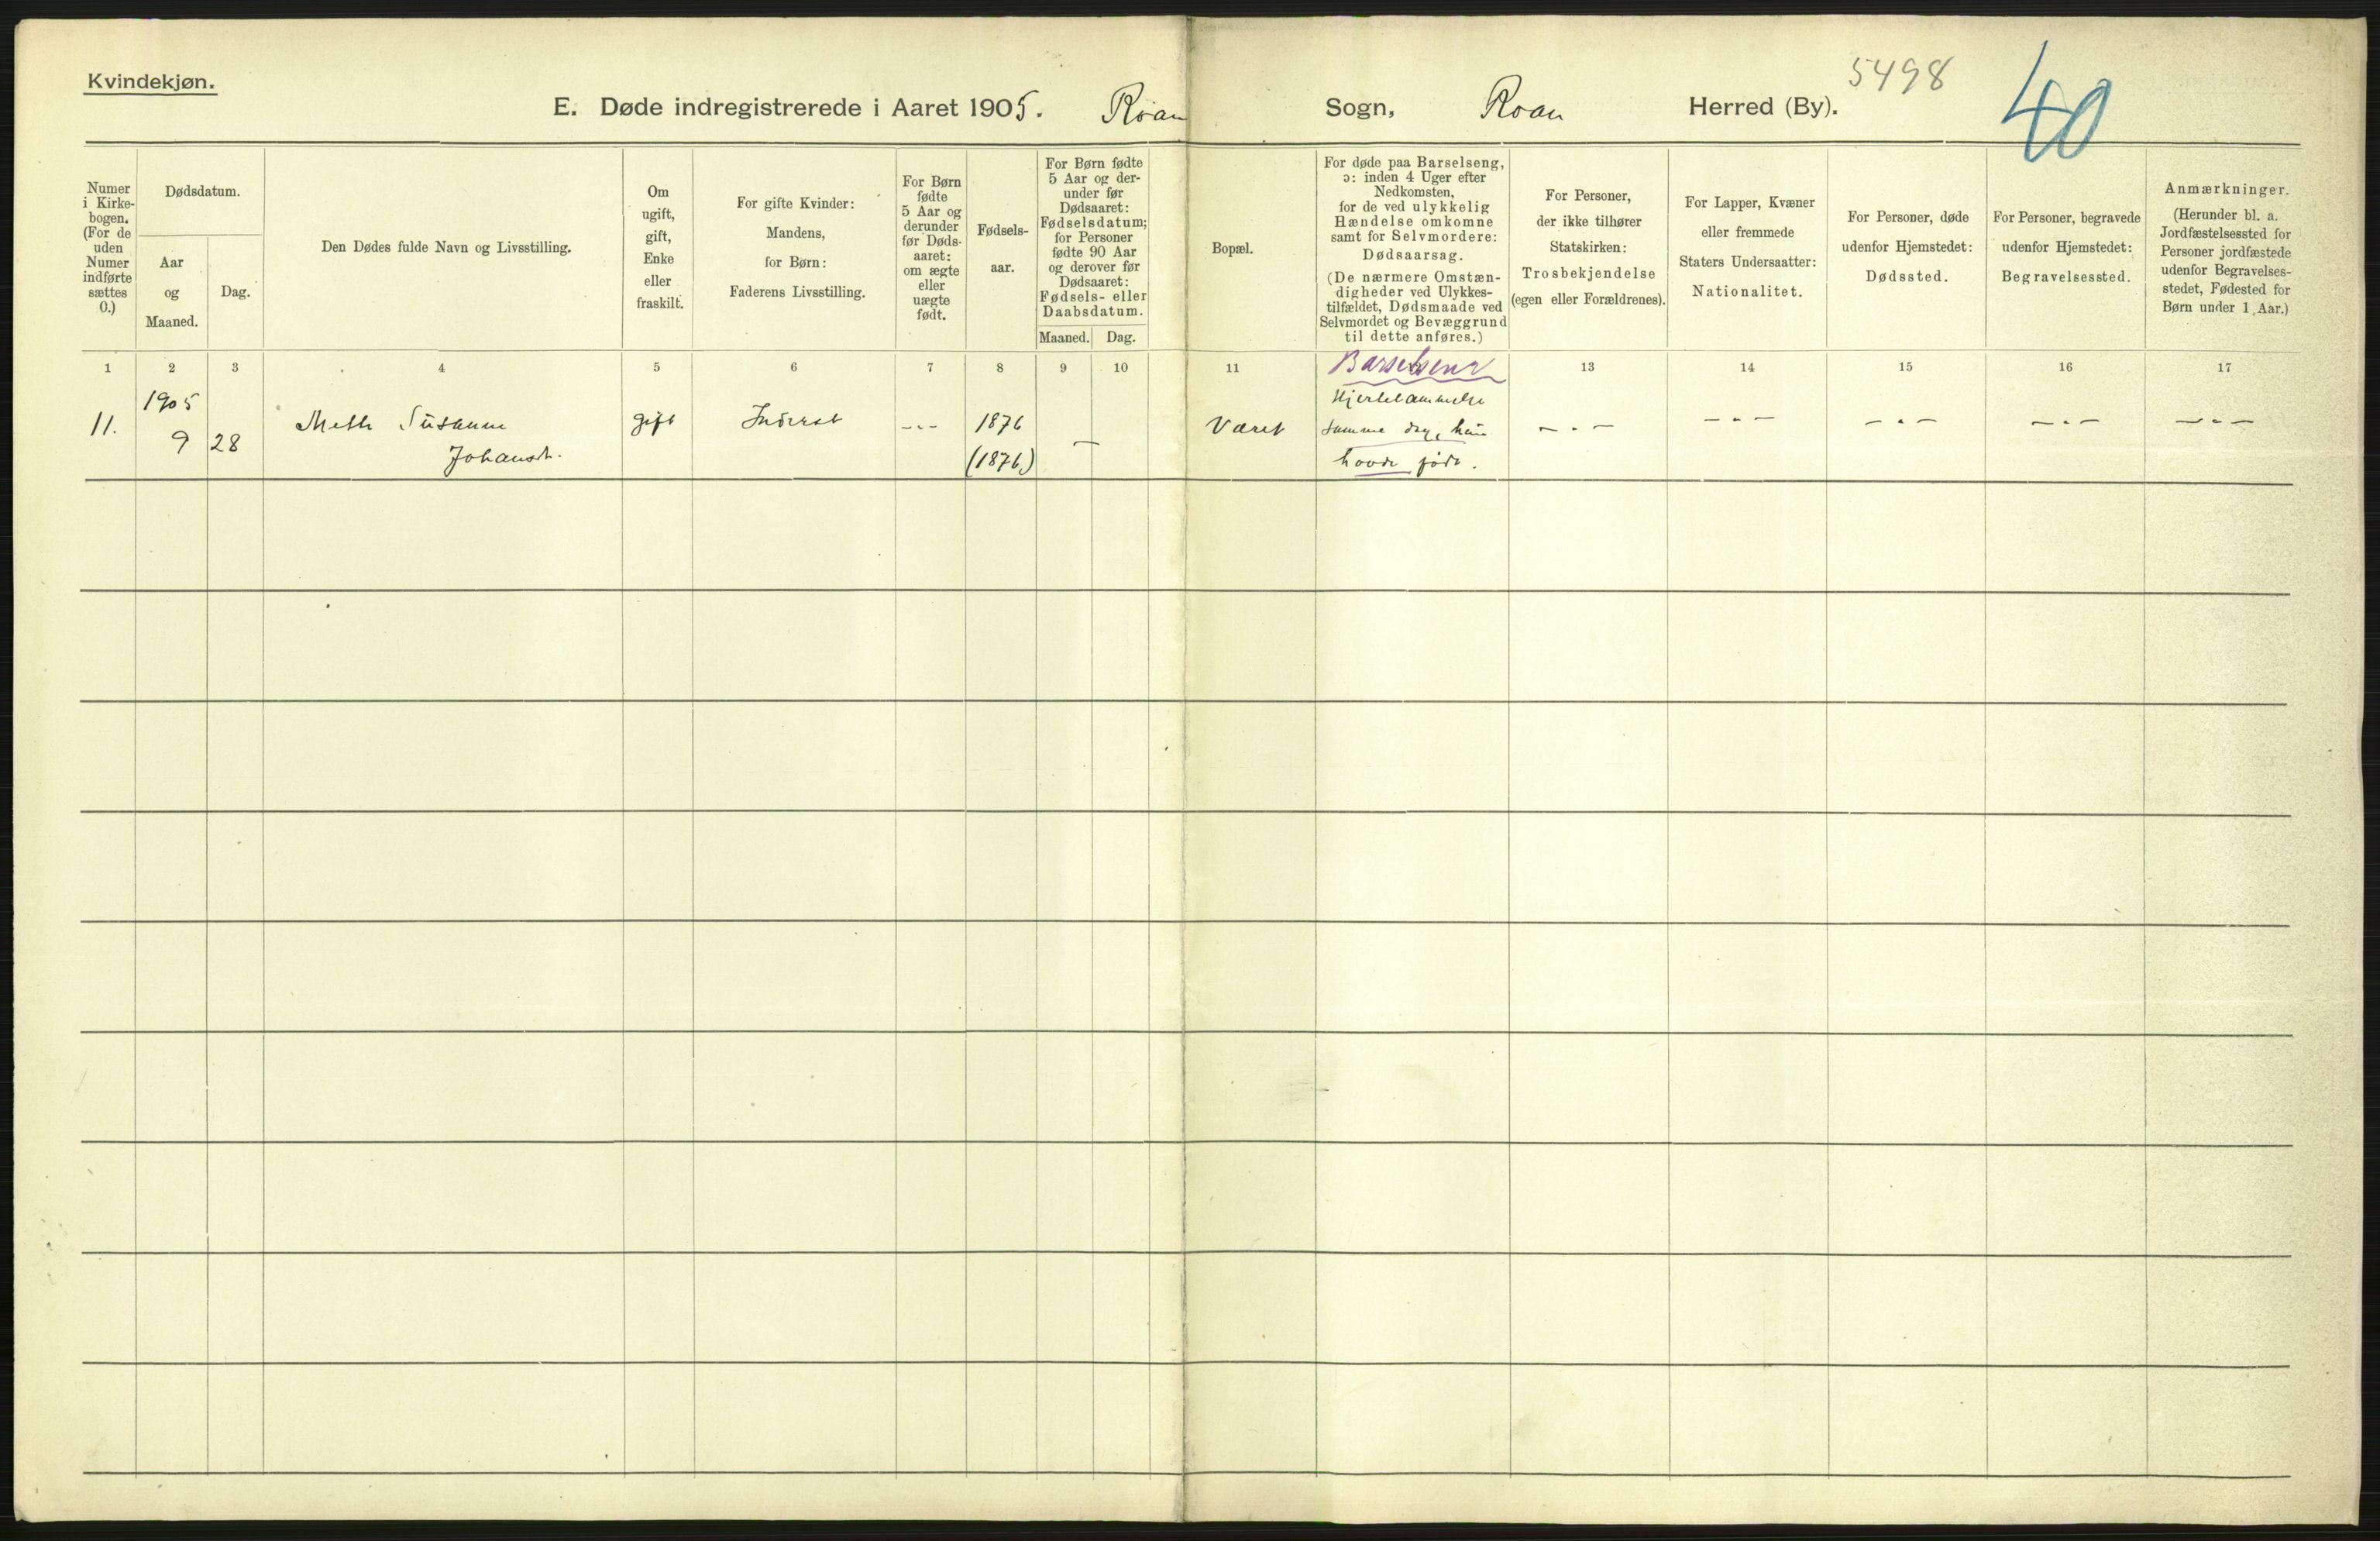 Kvindekjøn.
5498
40
E. Døde indregistrerede i Aaret 1905. Roan Sogn, Roan Herred (By).
Numer
i Kirke-
bogen.
(For de
uden
Numer
indførte
sættes
0.)
Dødsdatum.
Aar
og
Maaned.
Dag.
Den Dødes fulde Navn og Livsstilling.
Om
ugift,
gift,
Enke
eller
fraskilt.
For gifte Kvinder:
Mandens,
for Børn:
Faderens Livsstilling.
For Børn
fødte
5 Aar og
derunder
før Døds-
aaret:
om ægte
eller
uægte
født.
Fødsels-
aar.
For Børn fødte
5 Aar og der-
under før
Dødsaaret:
Fødselsdatum;
for Personer
fødte 90 Aar
og derover før
Dødsaaret:
Fødsels- eller
Daabsdatum.
Maaned. Dag.
Bopæl.
For døde paa Barselseng,
ɔ: inden 4 Uger efter
Nedkomsten,
for de ved ulykkelig
Hændelse omkomne
samt for Selvmordere:
Dødsaarsag.
(De nærmere Omstæn-
digheder ved Ulykkes-
tilfældet, Dødsmaade ved
Selvmordet og Bevæggrund
til dette anføres.)
For Personer,
der ikke tilhører
Statskirken:
Trosbekjendelse
(egen eller Forældrenes).
For Lapper, Kvæner
eller fremmede
Staters Undersaatter:
Nationalitet.
For Personer, døde
udenfor Hjemstedet:
Dødssted.
For Personer, begravede
udenfor Hjemstedet:
Begravelsessted.
Anmærkninger.
(Herunder bl. a.
Jordfæstelsessted for
Personer jordfæstede
udenfor Begravelses-
stedet, Fødested for
Børn under 1 Aar.)
1 2 3 4 5 6 7 8 9 10 11 13 14 15 16 17
Barselseng
11.
1905
9 28
Meth Susanne
Johansdt.
gift
Inderst
---
1876
(1876)
—
Været
Hjertelammelse
samme dag, hun
havde født.
- . -
- . -
- . -
- . -
- . -